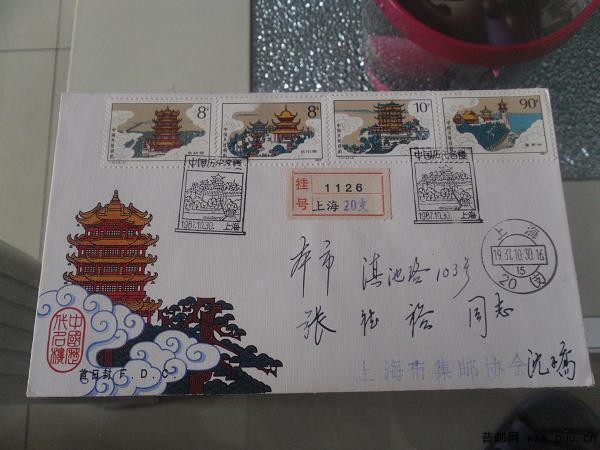 8分
8分
10分
90分
中国历代名楼
1987.10.30.
上海
挂号
1126
上海 20支
中国历代名楼
1987.10.30.
上海
上海
1987.10.30.16
15
20 (支)
本市 滇池路103号
张 裕 同志
上海市集邮协会
中國歷代名樓
首日封 F.D.C.
普邮网
www.puu.cn